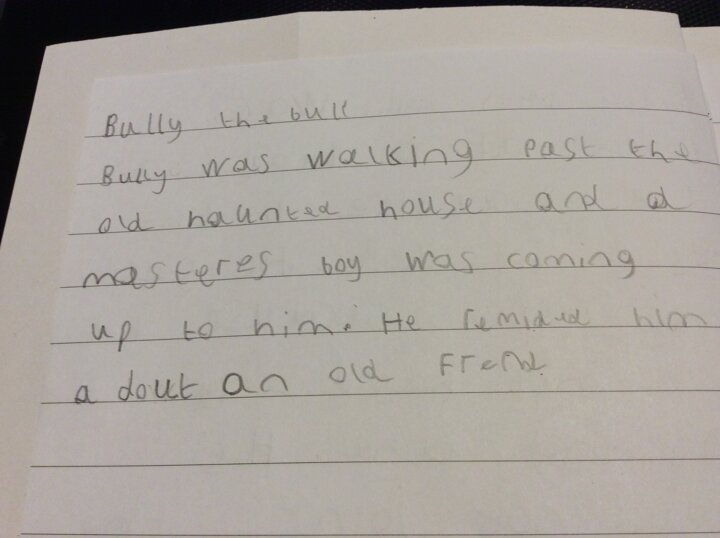 Bully the bull
Bully was walking past the
old haunted house and a
masteres boy was coming
up to him. He remided him
a dout an old Frend